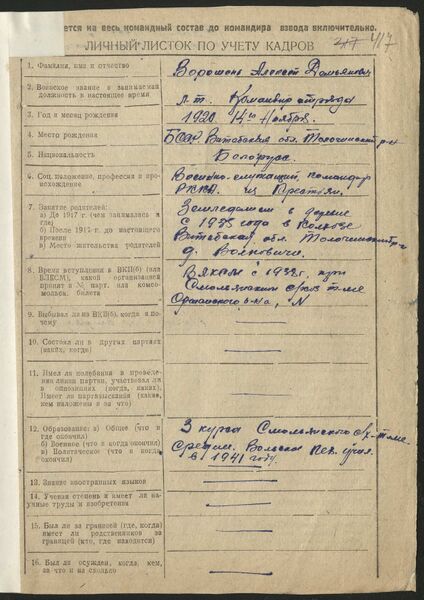 ется на весь командный состав до командира взвода включительно.
ЛИЧНЫЙ ЛИСТОК ПО УЧЕТУ КАДРОВ
417
1. Фамилия, имя и отчество
Ворошень Алексей Демьянович
2. Воинское звание и занимаемая
должность в настоящее время
л-т. Командир отряда
3. Год и месяц рождения
1920 14го Ноября.
4. Место рождения
БССР Витебская обл. Толочинский р-н
5. Национальность
Белорус.
6. Соц. положение, профессия и происхождение
Военно-служащий, командир
РККА из Крестьян.
7. Занятие родителей:
а) До 1917 г. (чем занимались и
где)
б) После 1917 г. до настоящего
времени
в) Место жительства родителей
Земледелием в деревне
с 1935 года в Колхозе
Витебская обл. Толочинский р-н
д. Волковичи.
8. Время вступления в ВКП(б) (или
ВЛКСМ), какой организацией
принят и № парт. или комсомольск. билета
ВЛКСМ с 1938 г.
Смольянским
Оршанского р-на, N
9. Выбывал ли из ВКП(б), когда и почему
—
10. Состоял ли в других партиях
(каких, когда)
—
11. Имел ли колебания в проведении линии партии, участвовал ли
в оппозициях (когда, каких).
Имеет ли партвзыскания (какие,
кем наложены и за что)
—
12. Образование: а) Общее (что и
где окончил)
б) Военное (что и когда окончил)
в) Политическое (что и когда
окончил)
3 курса Смольянского
Средним. Вольское пех. учил.
в 1941 году.
13. Знание иностранных языков
—
14. Ученая степень и имеет ли научные труды и изобретения
—
15. Был ли за границей (где, когда)
имеет ли родственников за
границей (кто, где находится)
—
16. Был ли осужден, когда, кем,
за что и на сколько
—